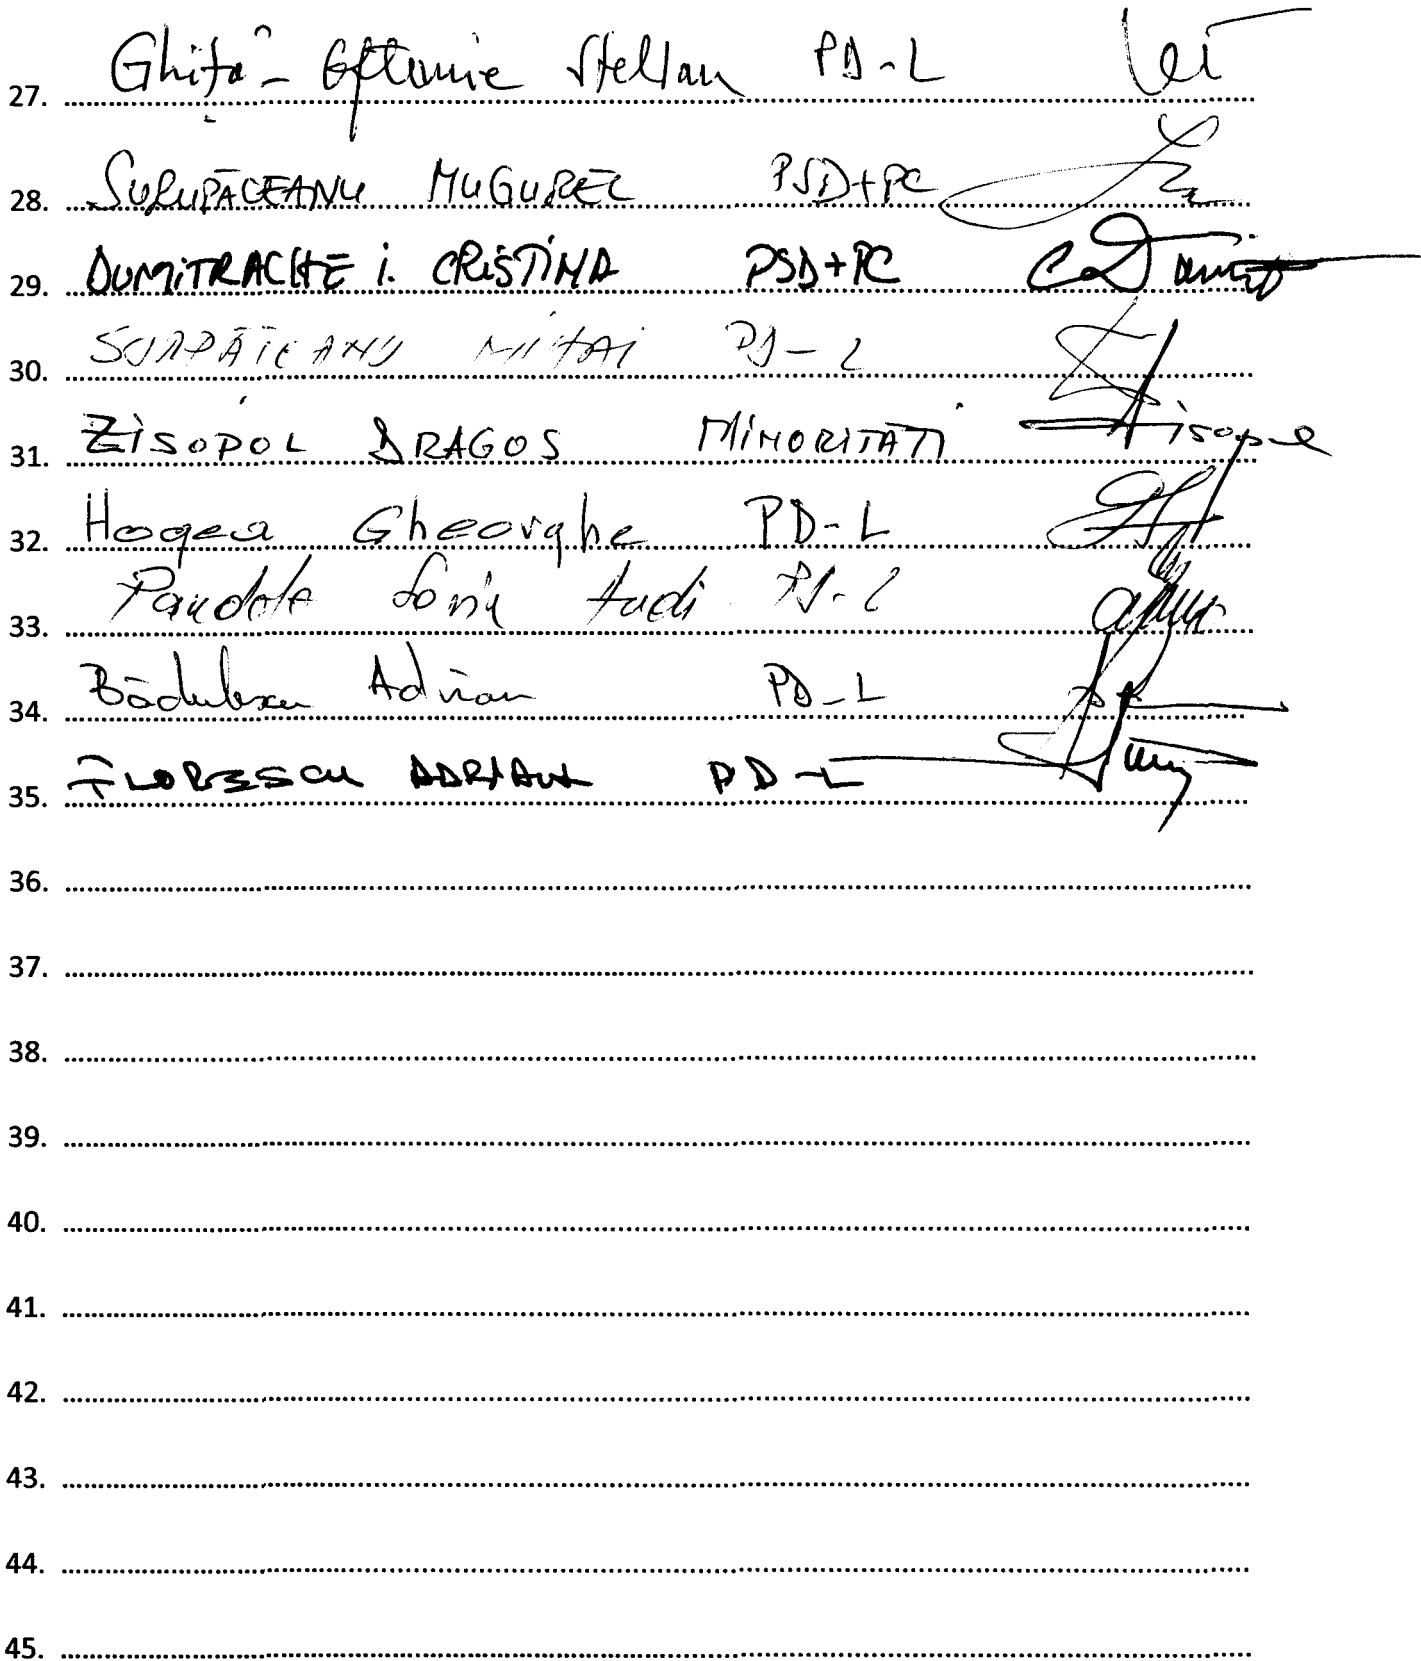 27. Ghiță - Eftimie Stelian PD-L
28. SURUPĂCEANU MUGUREL PSD+PC
29. DUMITRACHE I. CRISTINA PSD+PC
30. SURPĂȚEANU MIHAI PD-L
31. ZISOPOL DRAGOS MINORITATI Zisopol
32. Hogea Gheorghe PD-L
33. Pandele Sorin Andi PD-L
34. Bădulescu Adrian PD-L
35. FLORESCU ADRIAN PD-L
36.
37.
38.
39.
40.
41.
42.
43.
44.
45.